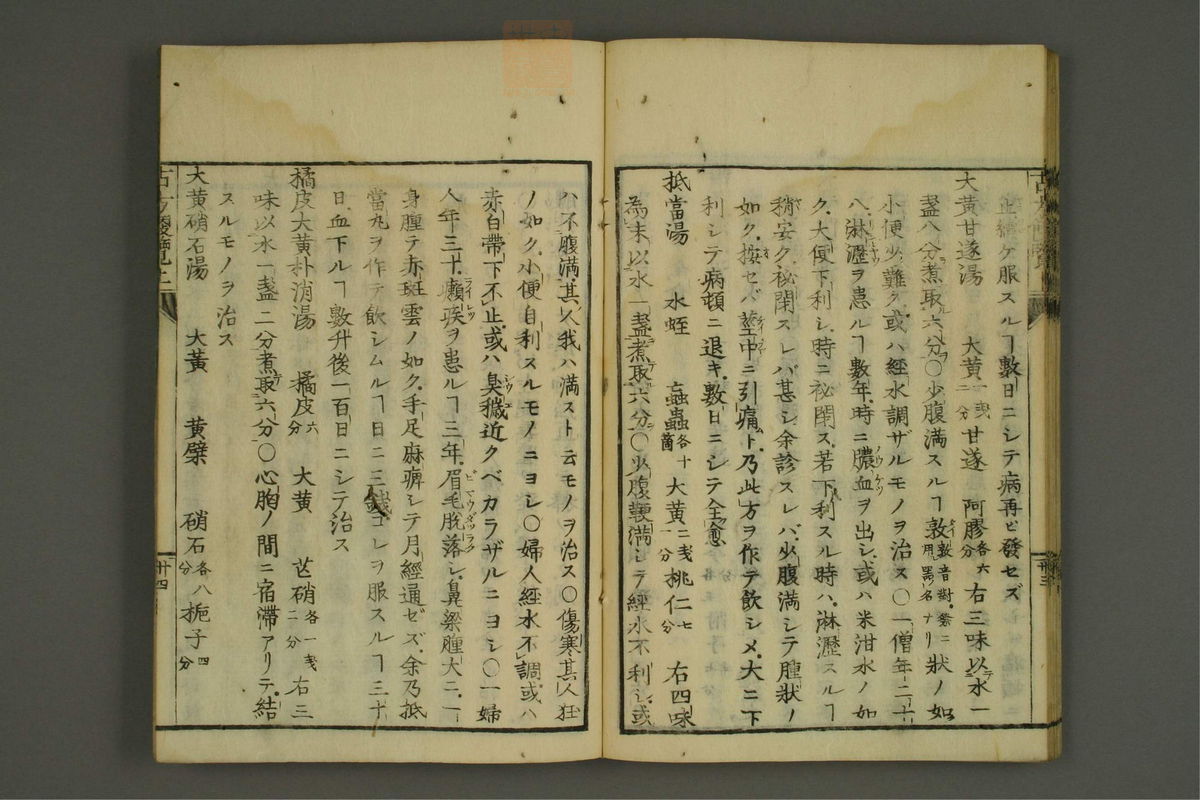 止續ケ服スルヿ數日ニシテ病再ビ發セズ
大黄甘遂湯 大黄一戔二分 甘遂 阿膠各六分 右三味以水一
盞八分煮取六分〇少腹満スルヿ敦敦音對祭ニ用ル噐ノ名ナリ狀ノ如
小便少シ難ク或ハ經水調ザルモノヲ治ス〇一僧年二十
ハ淋瀝ヲ患ルヿ數年時ニ膿血ヲ出シ或ハ米泔水ノ如
ク大便下利シ時ニ祕閉ス若下利スル時ハ淋瀝スルヿ
稍安ク祕閉スレバ甚シ余診スレバ少腹満シテ腫狀ノ
如ク按セバ莖中ニ引痛ム乃此方ヲ作テ飲シメ大ニ下
利シテ病頓ニ退キ數日ニシテ全愈
抵當湯 水蛭 蝱蟲各十箇 大黄二戔一分 桃仁七分 右四味
為末以水一盞煮取六分〇少腹鞕満シテ經水不利シ或
ハ不腹満其人我ハ満スト云モノヲ治ス〇傷寒其人狂
ノ如ク小便自利スルモノニヨシ〇婦人經水不調或ハ
赤白帶下不止或ハ臭穢近クベカラザルニヨシ〇一婦
人年三十癩疾ヲ患ルヿ三年眉毛脱落シ鼻梁腫大ニ一
身腫テ赤斑雲ノ如ク手足麻痺シテ月經通ゼズ余乃抵
當丸ヲ作テ飲シムルヿ日ニ三錢コレヲ服スルヿ三十
日血下ルヿ數升後一百日ニシテ治ス
橘皮大黄朴消湯 橘皮六分 大黄 芒硝各一戔二分 右三
味以水一盞二分煮取六分〇心胸ノ間ニ宿滯アリテ結
スルモノヲ治ス
大黄硝石湯 大黄 黄檗 硝石各八分 梔子四分